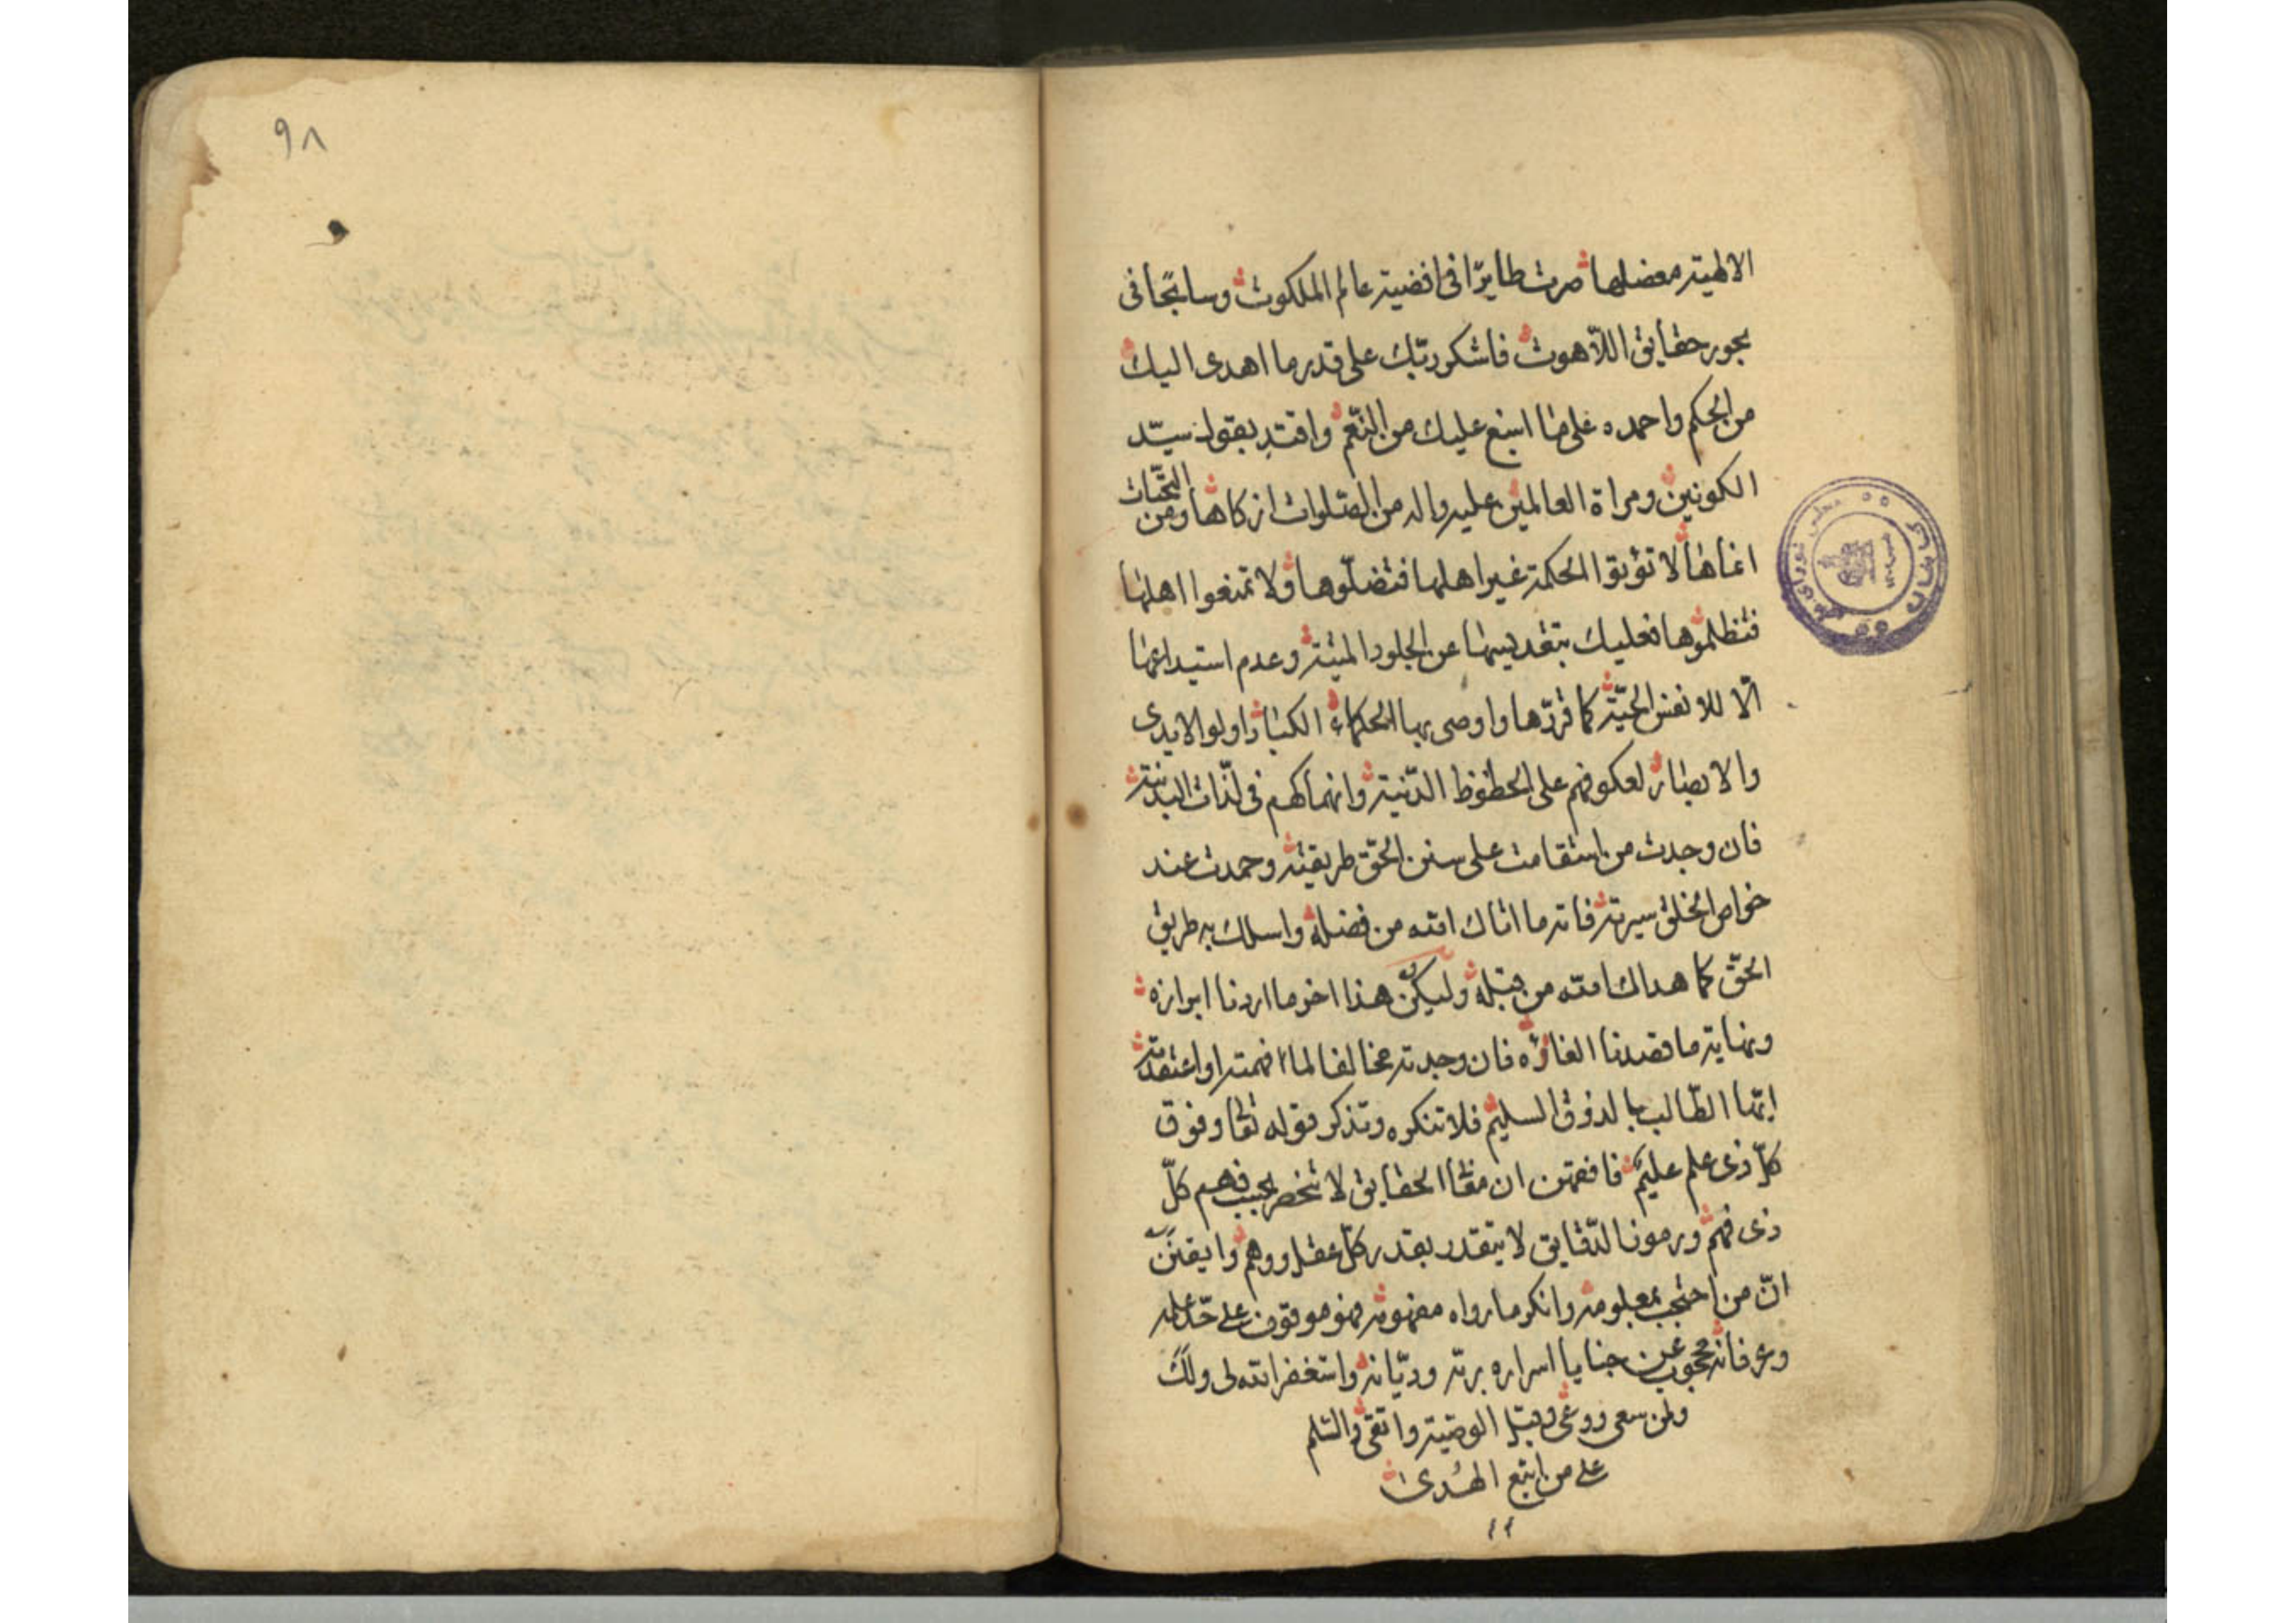 الالهية معضلها صرت طايرًا فى افضية عالم الملكوت وسابحًا فى
بحور حقايق اللاهوت فاشكر ربّك على قدر ما اهدى اليك
من الحكم واحمده على ما اسبغ عليك من النّعم واقتد بقول سيّد
الكونين ومراة العالمين عليه واله من الصّلوات ازكاها ومن التحيّات
انماها لا تؤتوا الحكمة غير اهلها فتضلّوها ولا تمنعوا اهلها
فتظلموها فعليك بتقديسها عن الجلود الميتة وعدم استيداعها
الّا للانفس الحيّة كما قرّرها واوصى بها الحكماء الكبار اولو الايدى
والابصار لعكوفهم على الحظوظ الدّنية وانهماكهم فى لذّات البدنية
فان وجدت من استقامت على سنن الحقّ طريقته وحمدت عند
خواص الخلق سيرته فاته ما اتاك الله من فضله واسلك به طريق
الحقّ كما هداك الله من قبله وليكن هذا اخر ما اردنا ابرازه
ونهاية ما قصدنا الغازه فان وجدته مخالفا لما فهمته او اعتقدته
ايّها الطّالب بالذوق السليم فلا تنكره وتذكر قوله تعالى وفوق
كلّ ذى علم عليم فافهمن ان الحقايق لا تنحصر بحسب فهم كلّ
ذى فهم ورموز الدّقايق لا يتقدر بقدر كلّ عقل ووهم وايقننّ
انّ من احتجب بمعلومه وانكر ما رواه مفهومه فهو موقوف على حدّ علمه
وعرفانه محجوب عن خبايا اسراره بربّه وديّانه واستغفر الله لى ولك
ولمن سعى ووعى وقبل الوصية واتقى والسّلم
على من اتبع الهُدى
٩٨
كاشان